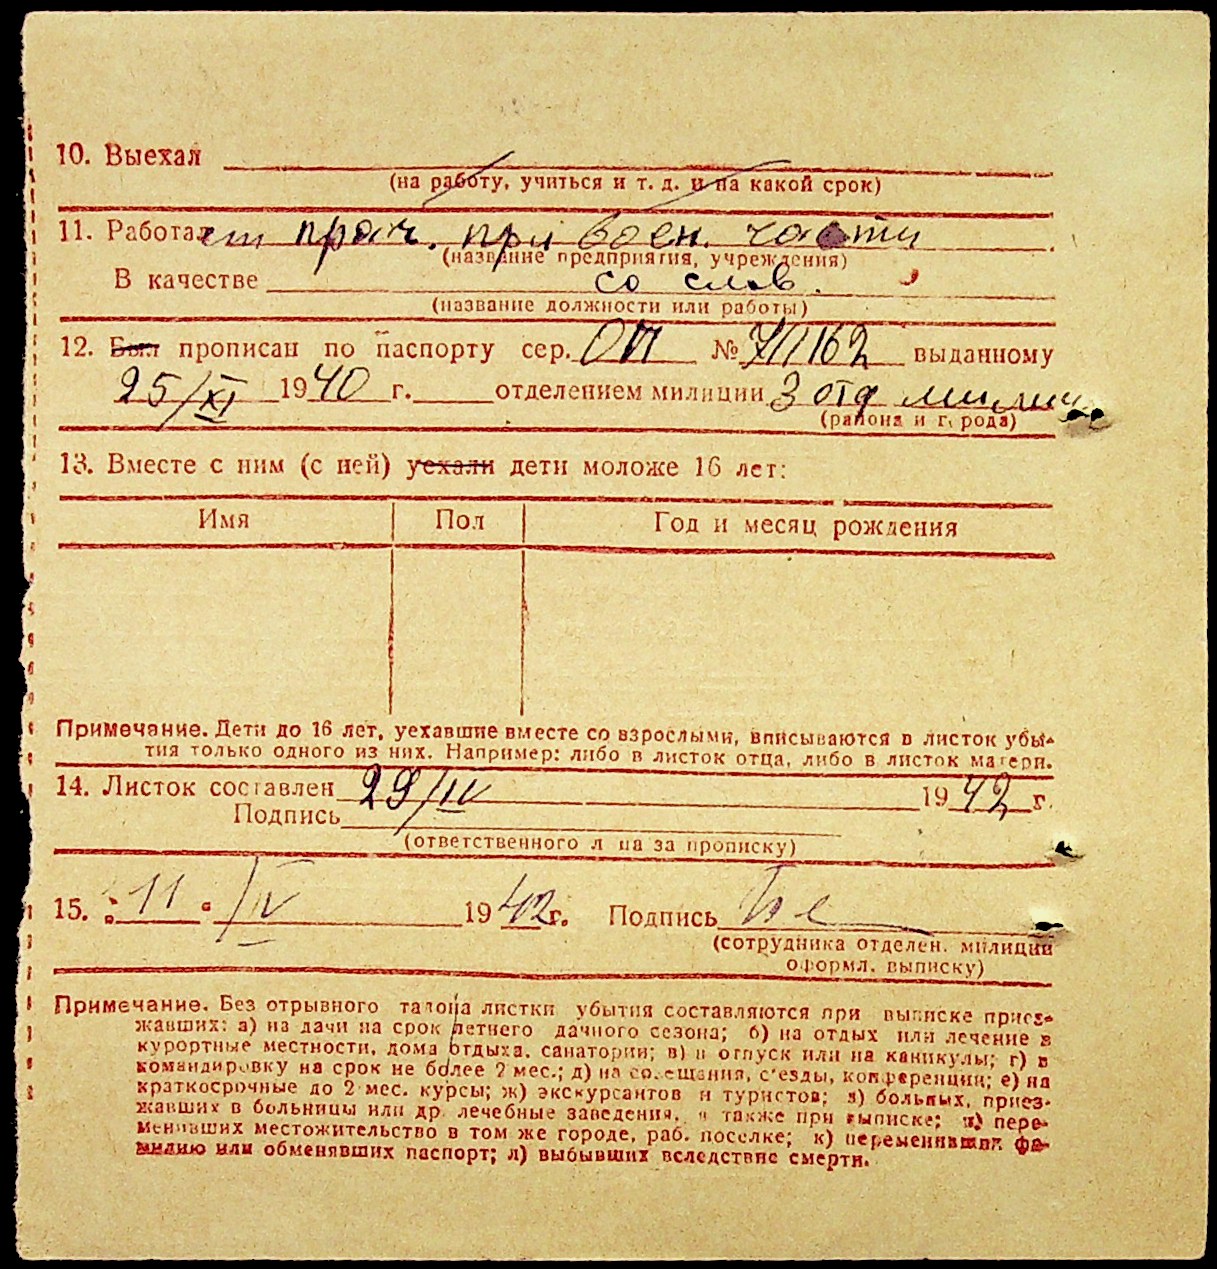 10. Выехал
(на работу, учиться и т. д. и на какой срок)
11. Работает прач. при воен. части
(название предприятия, учреждения)
В качестве со слов.
(название должности или работы)
12. Был прописан по паспорту сер. ОП № выданному
25/XI 1940 г. отделением милиции 3 отд милиции
(района и города)
13. Вместе с ним (с ней) уехали дети моложе 16 лет:
Имя Пол Год и месяц рождения
Примечание. Дети до 16 лет, уехавшие вместе со взрослыми, вписываются в листок убы-
тия только одного из них. Например: либо в листок отца, либо в листок матери.
14. Листок составлен 29/IV 1942 г.
Подпись
(ответственного лица за прописку)
15. "11" IV 1942 г. Подпись
(сотрудника отделен. милиции
оформл. выписку)
Примечание. Без отрывного талона листки убытия составляются при выписке приез-
жавших: а) на дачи на срок летнего дачного сезона; б) на отдых или лечение в
курортные местности, дома отдыха, санатории; в) в отпуск или на каникулы; г) в
командировку на срок не более 2 мес.; д) на совещания, с'езды, конференции; е) на
краткосрочные до 2 мес. курсы; ж) экскурсантов и туристов; з) больных, приез-
жавших в больницы или др. лечебные заведения, а также при выписке; и) пере-
менивших местожительство в том же городе, раб. поселке; к) переменивших фа-
милию или обменявших паспорт; л) выбывших вследствие смерти.